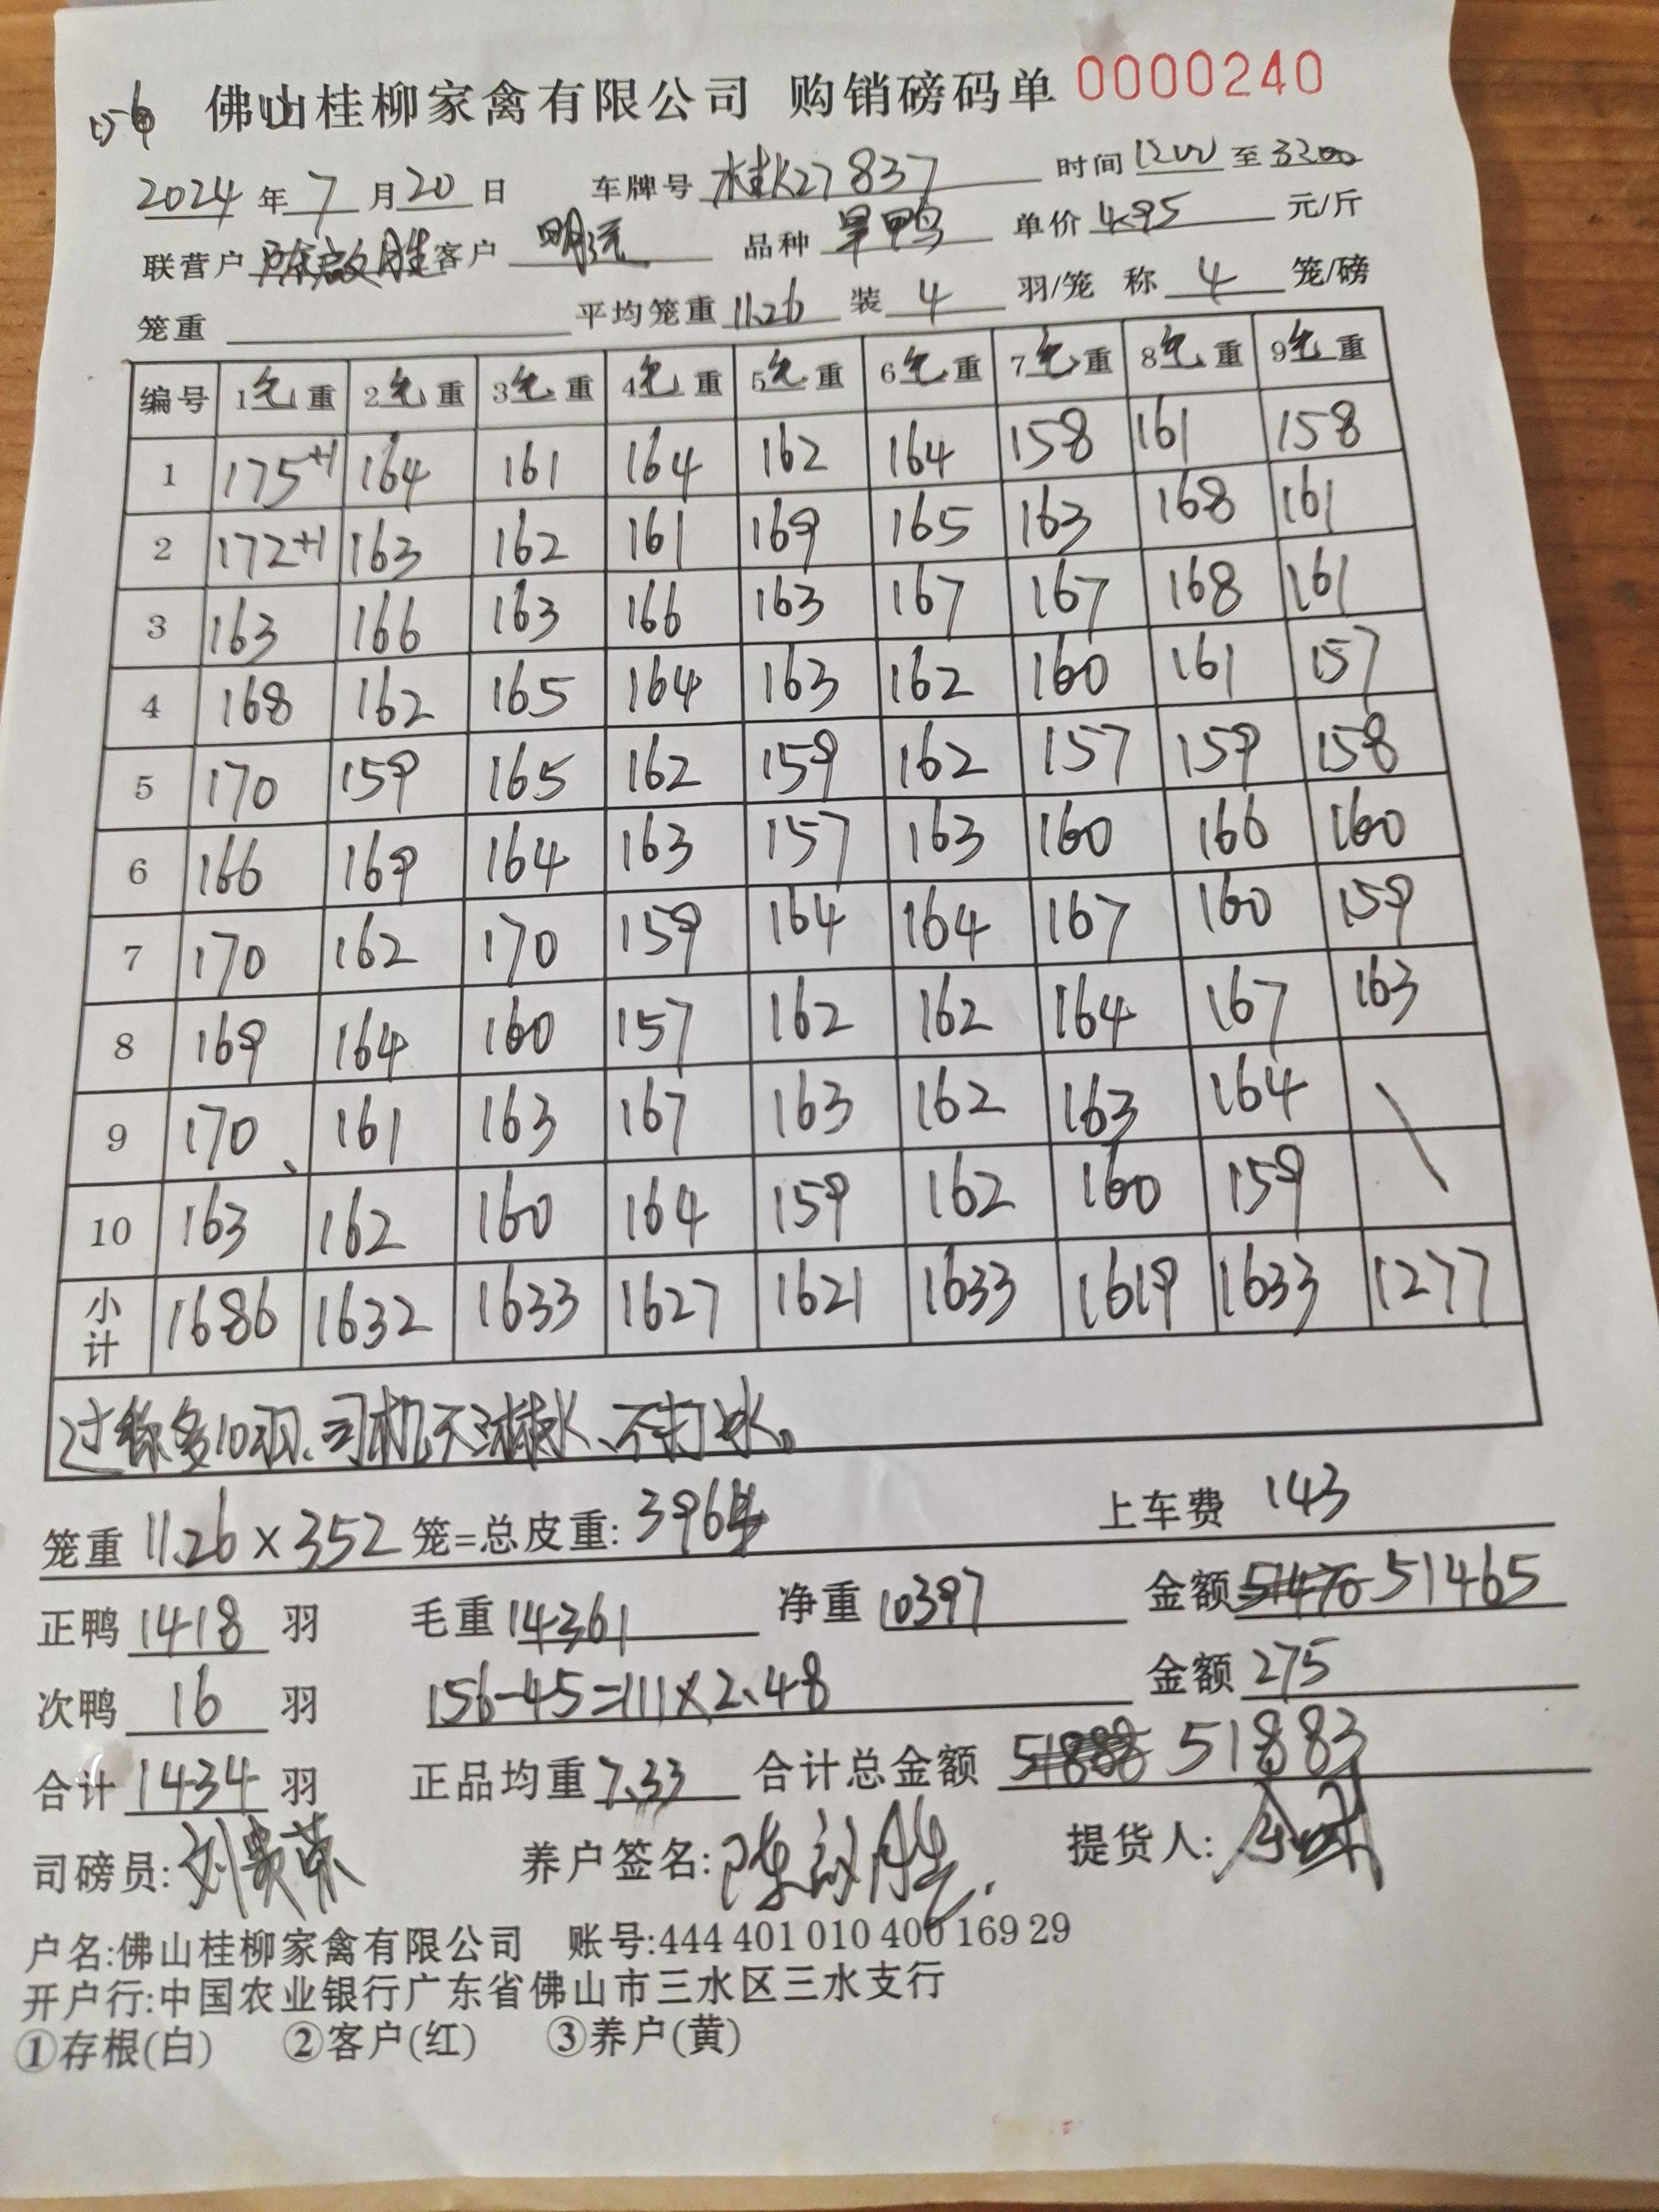 佛山桂柳家禽有限公司 购销磅码单 0000240
2024 年 7 月 20 日 车牌号 桂K27837 时间 1200 至 3200
联营户 陈啟胜 客户 明沅 品种 旱鸭 单价 4.95 元/斤
笼重 平均笼重 11.26 装 4 羽/笼 称 4 笼/磅
编号 1毛重 2毛重 3毛重 4毛重 5毛重 6毛重 7毛重 8毛重 9毛重
1 175+1 164 161 164 162 164 158 161 158
2 172+1 163 162 161 169 165 163 168 161
3 163 166 163 166 163 167 167 168 161
4 168 162 165 164 163 162 160 161 157
5 170 159 165 162 159 162 157 159 158
6 166 169 164 163 157 163 160 166 160
7 170 162 170 159 164 164 167 160 159
8 169 164 160 157 162 162 164 167 163
9 170 161 163 167 163 162 163 164
10 163 162 160 164 159 162 160 159
小计 1686 1632 1633 1627 1621 1633 1619 1633 1277
过称多10羽、司机不淋水、不打冰。
笼重 11.26 × 352 笼=总皮重: 3964 上车费 143
正鸭 1418 羽 毛重 14361 净重 10397 金额 51470 51465
次鸭 16 羽 156-45=111×2.48 金额 275
合计 1434 羽 正品均重 7.33 合计总金额 51888 51883
司磅员: 刘贵荣 养户签名: 陈啟胜 提货人:
户名:佛山桂柳家禽有限公司 账号:444 401 010 400 169 29
开户行:中国农业银行广东省佛山市三水区三水支行
①存根(白) ②客户(红) ③养户(黄)